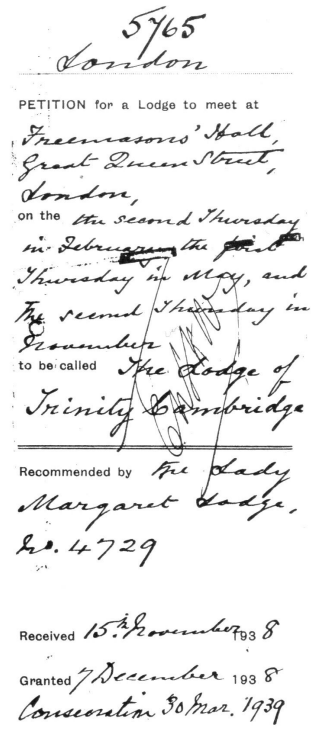 5765
London
PETITION for a Lodge to meet at
Freemasons' Hall,
Great Queen Street,
London,
on the the second Thursday
in February the first
Thursday in May, and
the second Thursday in
November
to be called The Lodge of
Trinity Cambridge
Recommended by The Lady
Margaret Lodge,
No. 4729
Received 15th November 1938
Granted 7 December 1938
Consecration 30 Mar. 1939